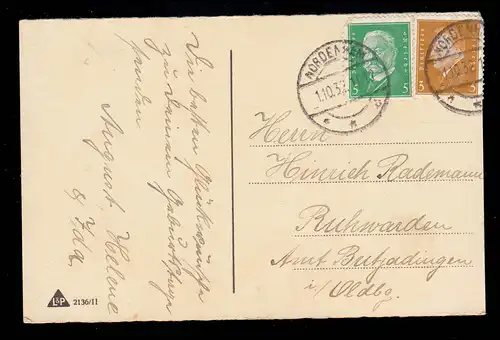 Die besten Glückwünsche
zu Deinem Geburtstage
senden
August, Helene
& Ida
L&P 2136/II
NORDENHAM
1.10.32
5 5
3 3
Herrn
Hinrich Rademann
Ruhwarden
Amt Butjadingen
i/Oldbg.